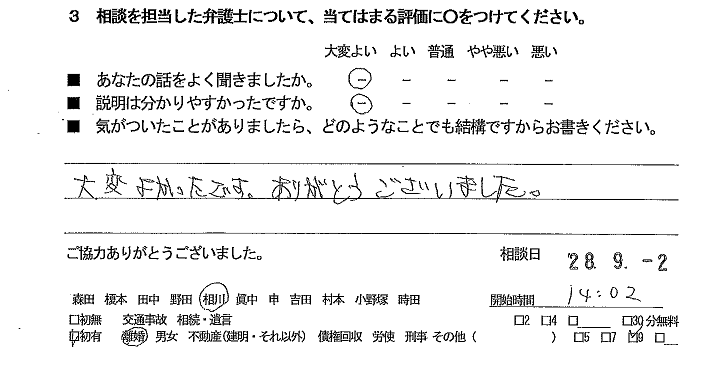 3 相談を担当した弁護士について、当てはまる評価に○をつけてください。
大変よい よい 普通 やや悪い 悪い
■ あなたの話をよく聞きましたか。 － － － － －
■ 説明は分かりやすかったですか。 － － － － －
■ 気がついたことがありましたら、どのようなことでも結構ですからお書きください。
大変よかったです。ありがとうございました。
ご協力ありがとうございました。 相談日 '28. 9. -2
森田 榎本 田中 野田 相川 眞中 申 吉田 村本 小野塚 時田 開始時間 14:02
□初無 交通事故 相続・遺言 □2 □4 □____ □30分無料
□初有 離婚 男女 不動産(建明・それ以外) 債権回収 労使 刑事 その他 ( ) □5 □7 □9 □__